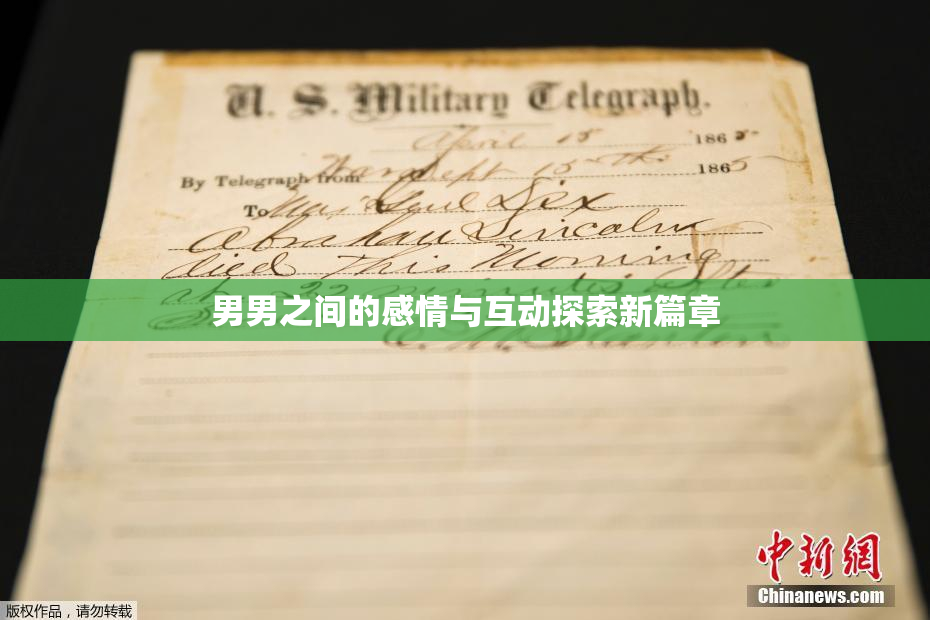 U. S. Military Telegraph.
April 15 1865
By Telegraph from War Dept 15th 1865
To Maj Genl Dix
Abraham Lincoln
died this Morning
at 22 minutes after
男男之间的感情与互动探索新篇章
E. M. Stanton
中新网
Chinanews.com
版权作品,请勿转载